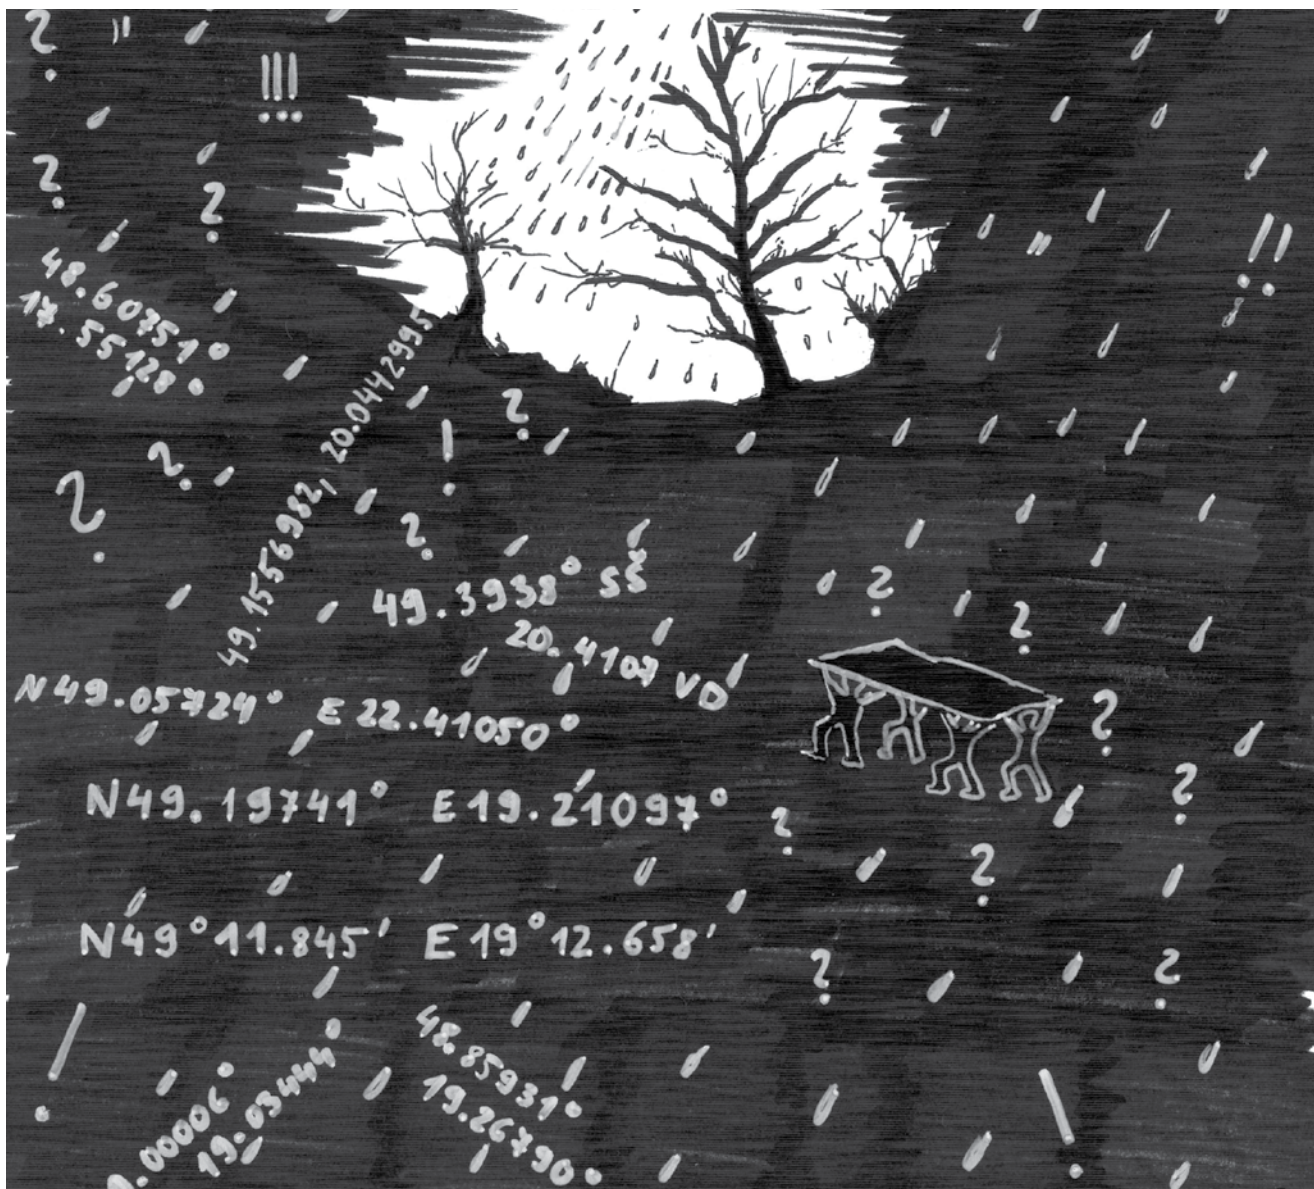 48.60751°
17.55128°
49.1556982, 20.0442995
49.3938° SŠ
20.4107 VD
N49.05724° E 22.41050°
N49.19741° E19.21097°
N49°11.845' E19°12.658'
.00006°
19.03444°
48.85931°
19.26790°